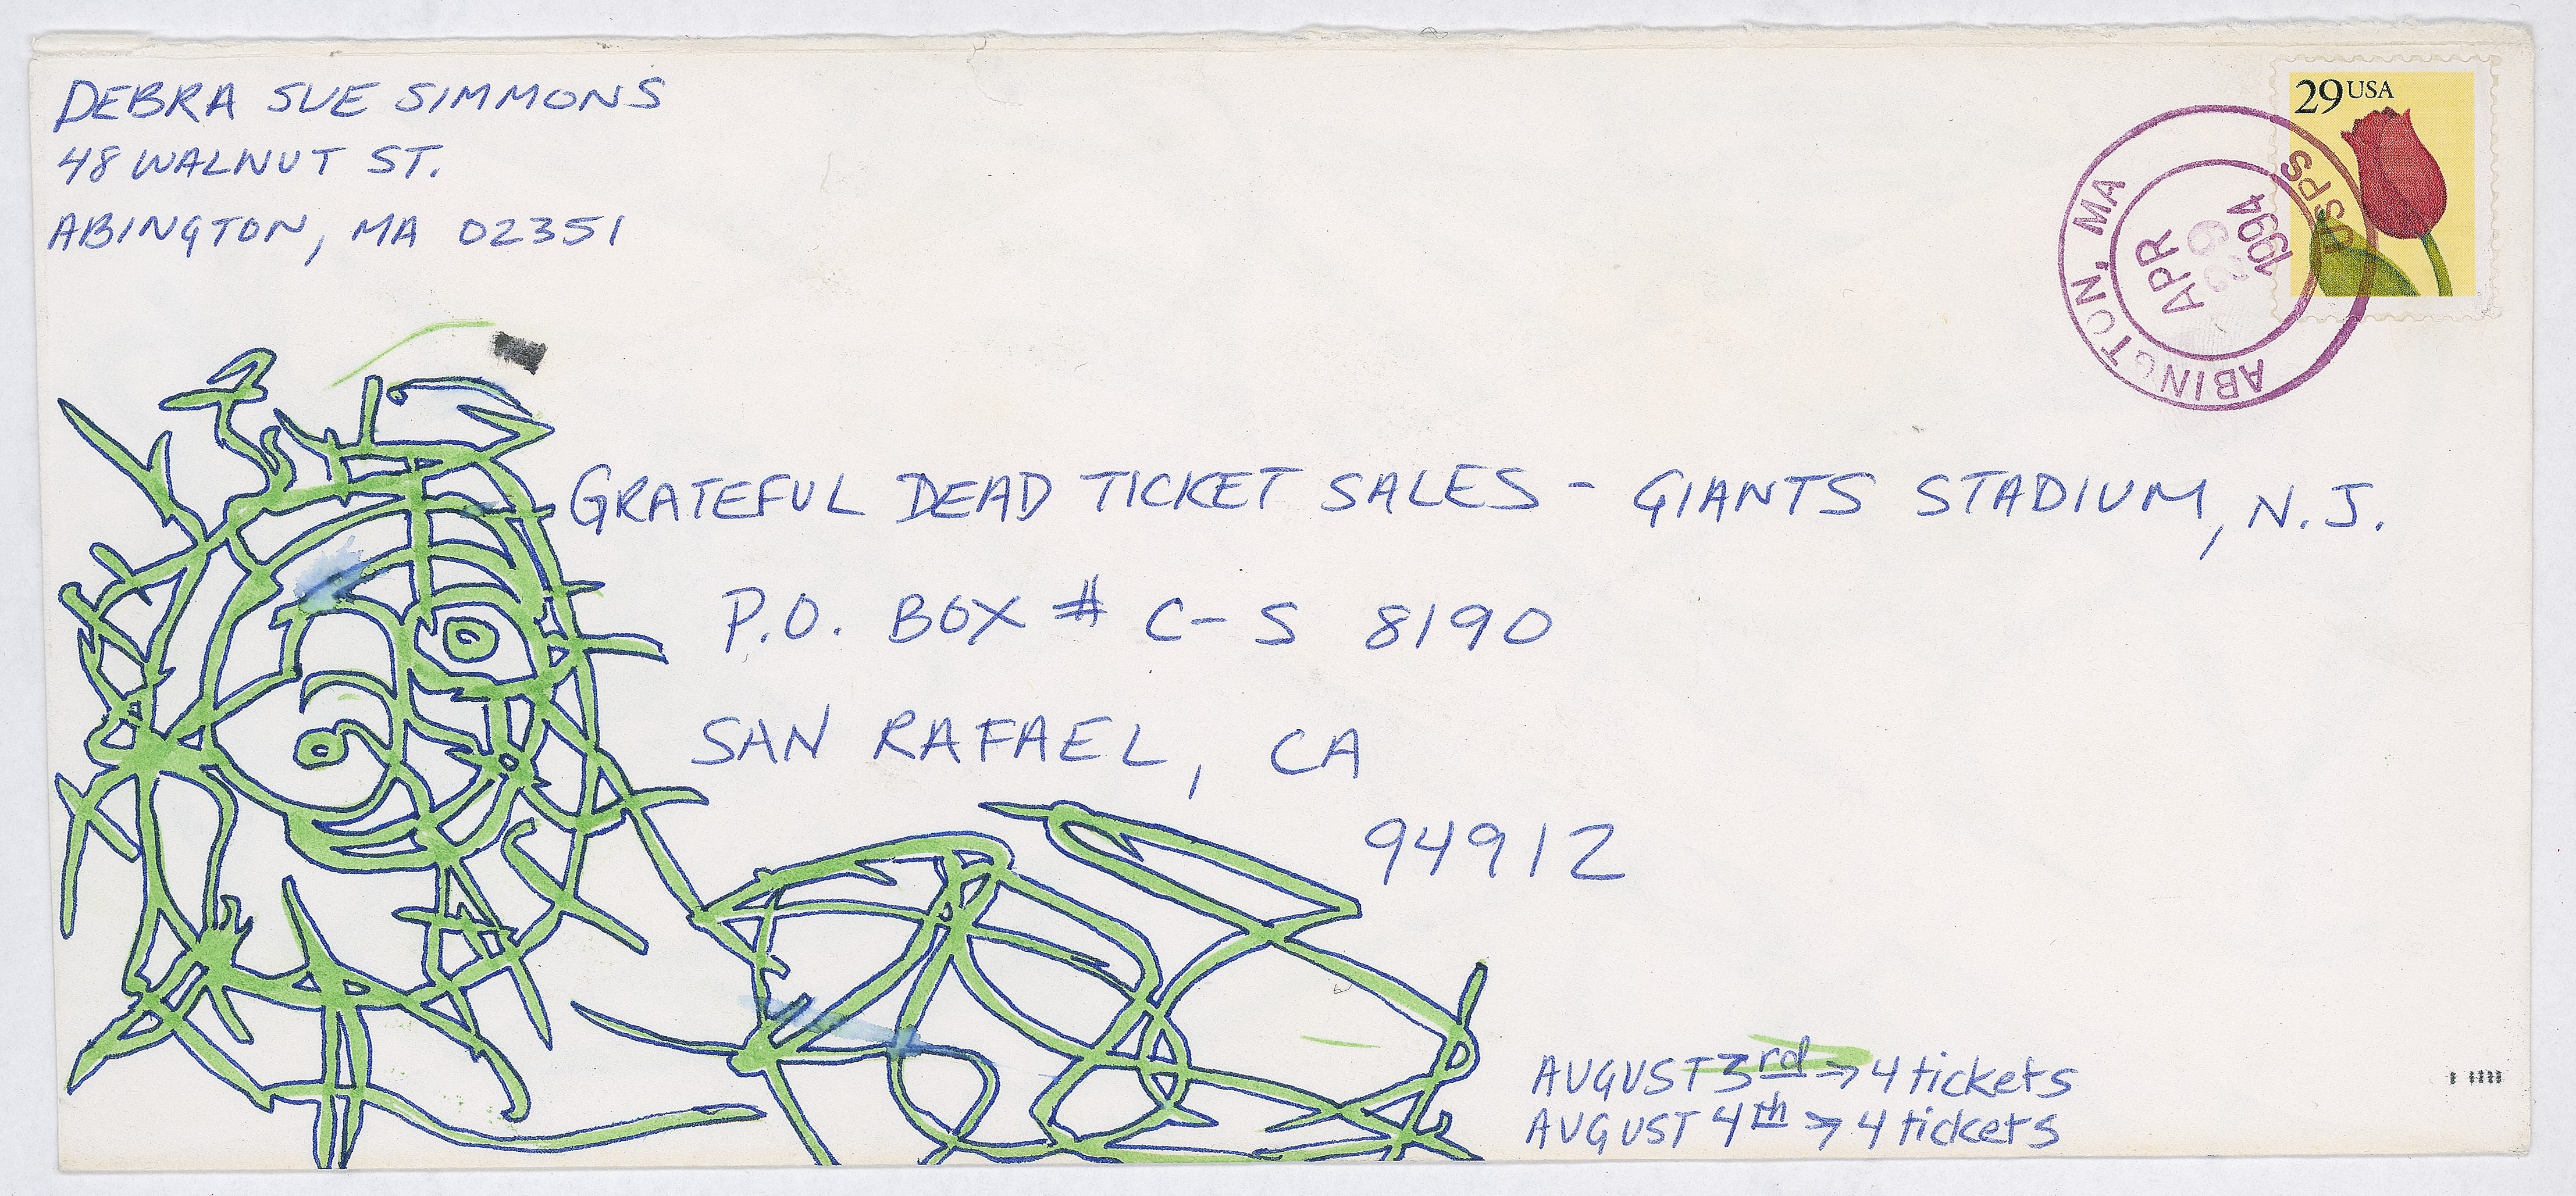 DEBRA SUE SIMMONS
48 WALNUT ST.
ABINGTON, MA 02351
29 USA
ABINGTON, MA
USPS
APR
29
1994
GRATEFUL DEAD TICKET SALES - GIANTS STADIUM, N.J.
P.O. BOX # C-S 8190
SAN RAFAEL, CA
94912
AUGUST 3rd → 4 tickets
AUGUST 4th → 4 tickets